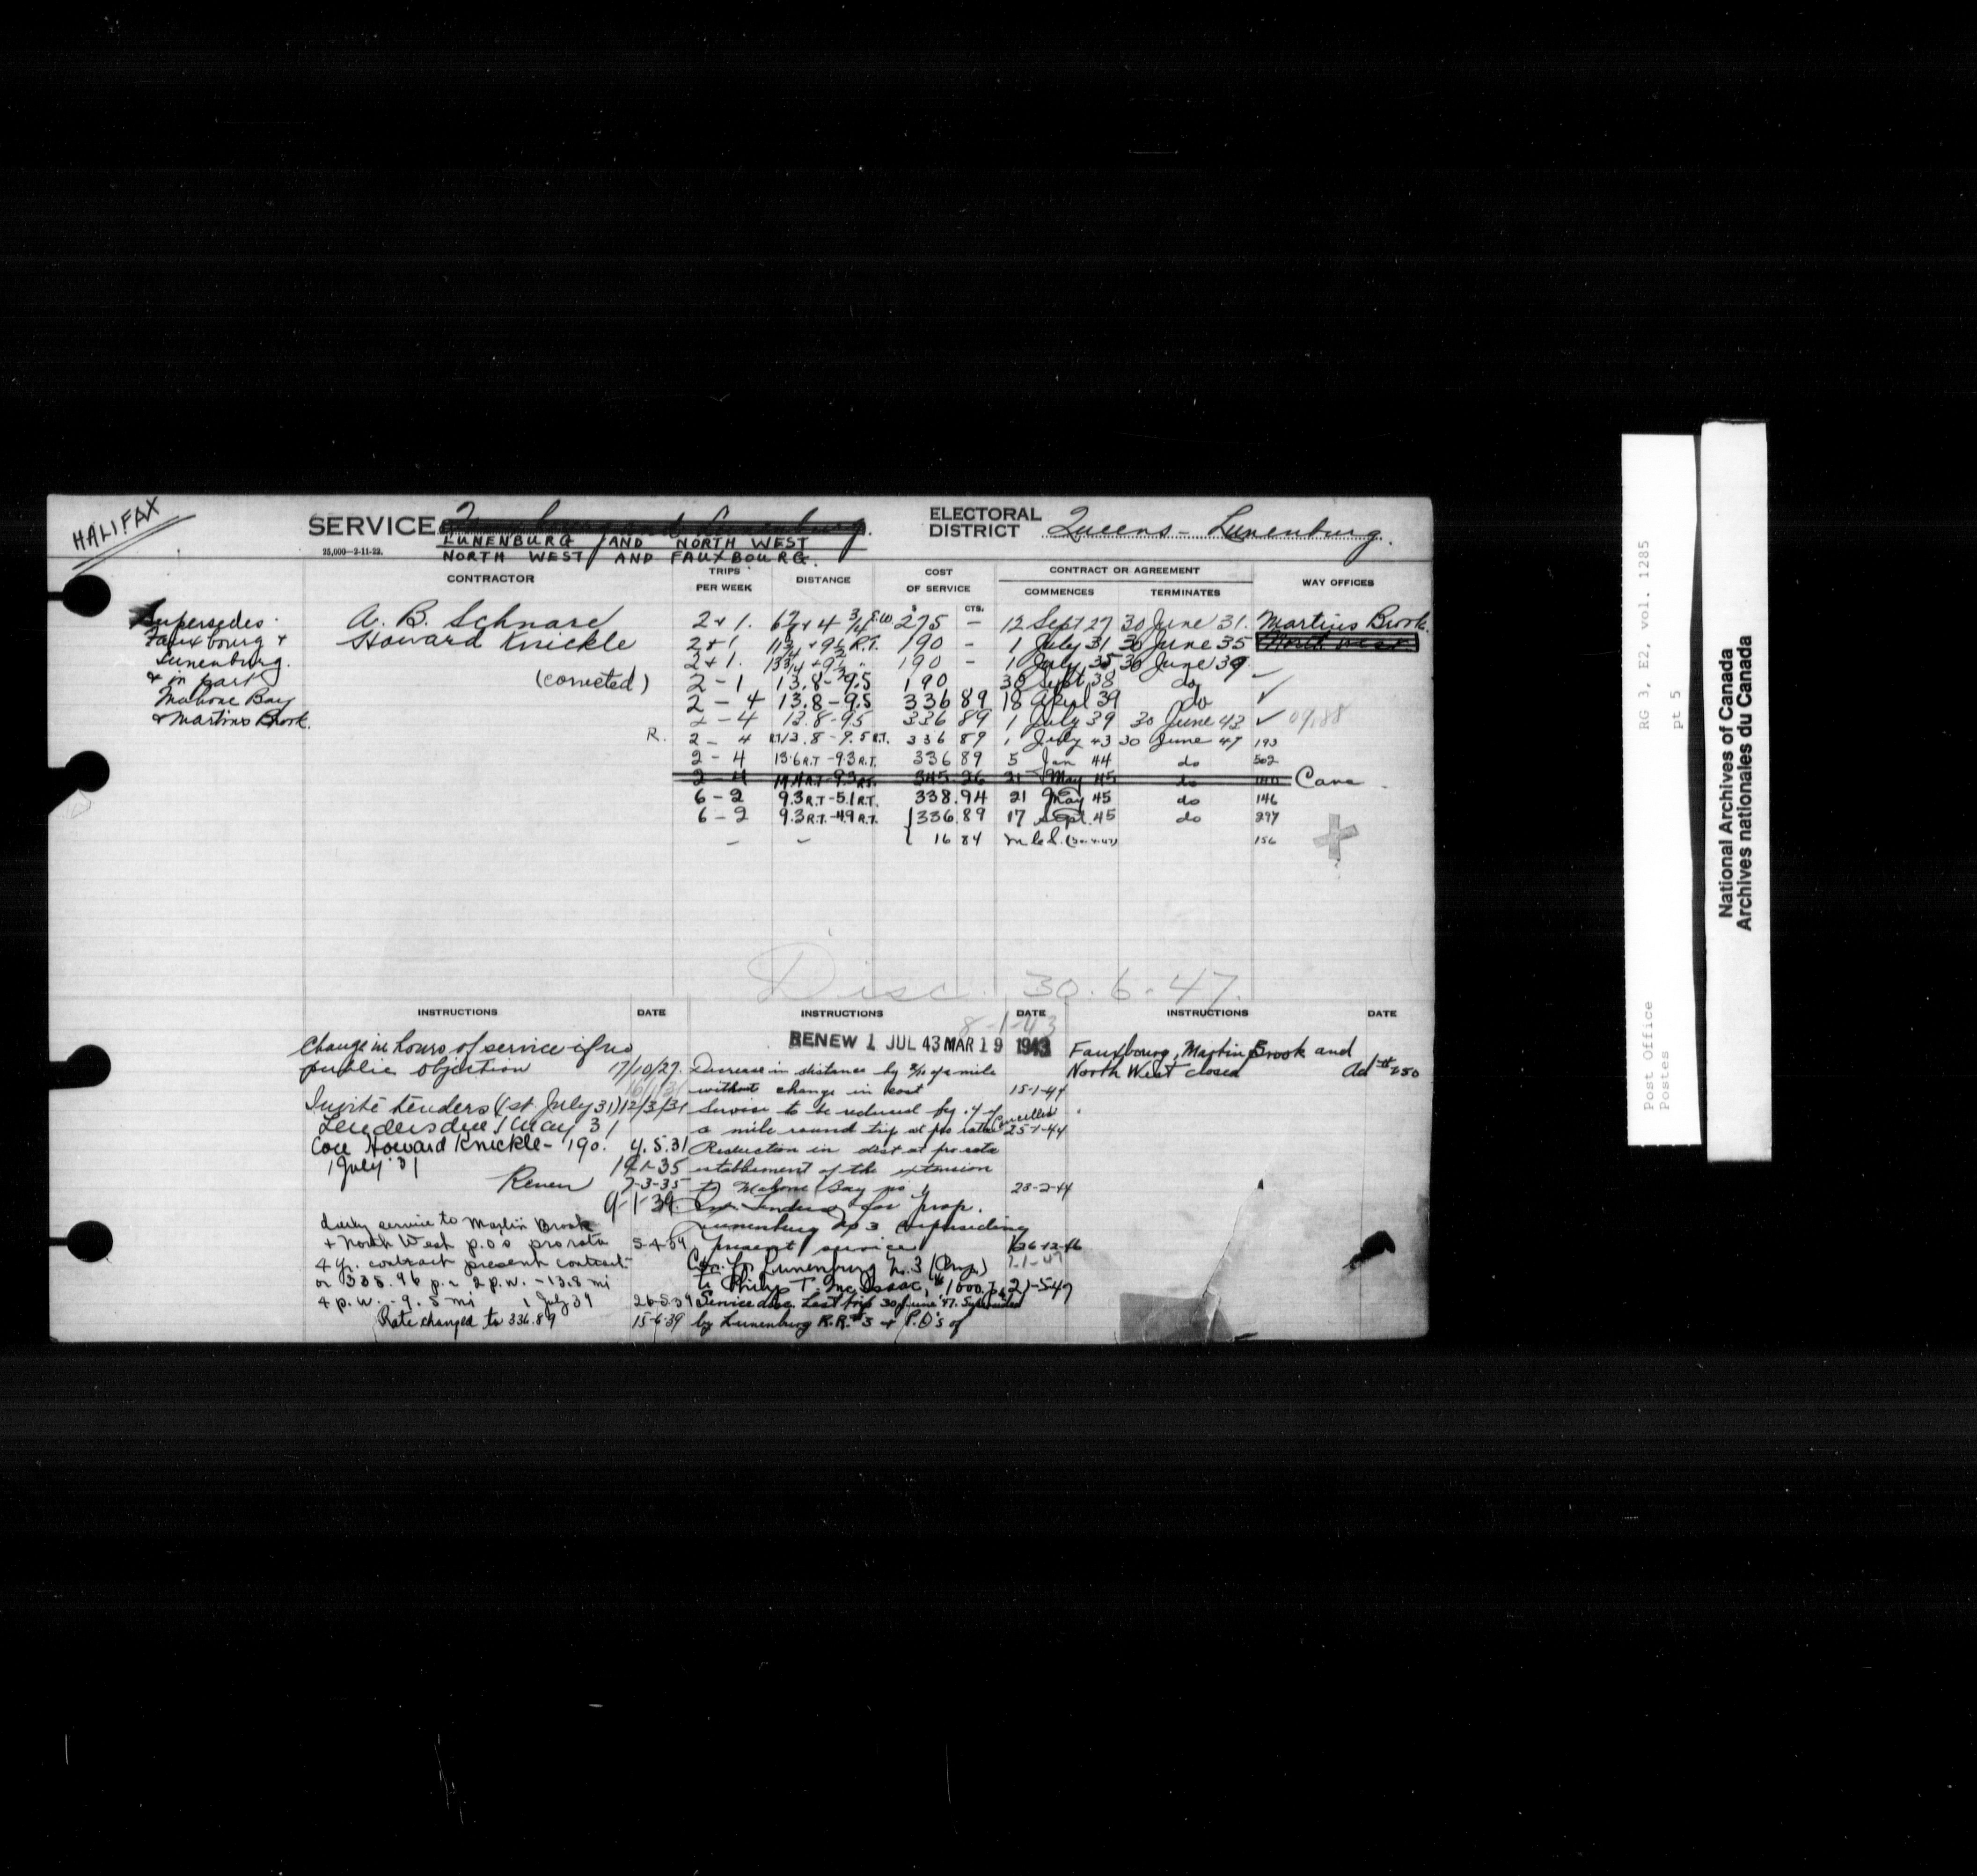 HALIFAX
SERVICE
LUNENBURG AND NORTH WEST
NORTH WEST AND FAUXBOURG.
25,000—2-11-22.
ELECTORAL DISTRICT Queens - Lunenburg.
CONTRACTOR
TRIPS PER WEEK
DISTANCE
COST OF SERVICE
$ CTS.
CONTRACT OR AGREEMENT
COMMENCES
TERMINATES
WAY OFFICES
Supersedes
Fauxbourg &
Lunenburg.
& in part
Mahone Bay
& Martins Brook.
A. B. Schnare 2 + 1. 275 - 12 Sept 27 30 June 31. Martins Brook.
Howard Knickle 2 + 1 11 3/4 + 9 1/2 R.T. 190 - 1 July 31 30 June 35 North West
2 + 1. 13 3/4 + 9 1/2 " 190 - 1 July 35 30 June 39
(corrected) 2 - 1 13.8 - 9.5 190 30 Sept 38 do
2 - 4 13.8 - 9.5 336 89 18 April 39 do ✓
2 - 4 13.8 - 9.5 336 89 1 July 39 30 June 43 ✓
R. 2 - 4 R.T. 13.8 - 9.5 R.T. 336 89 1 July 43 30 June 47 193
2 - 4 13.6 R.T. - 9.3 R.T. 336 89 5 Jan 44 do 502
2 - 4 9.3 R.T. 345 26 21 May 45 do Canc.
6 - 2 9.3 R.T. - 5.1 R.T. 338.94 21 May 45 do 146
6 - 2 9.3 R.T. - 4.9 R.T. 336.89 17 Sept. 45 do 297
- - 16 84 156
Disc. 30.6.47.
INSTRUCTIONS DATE INSTRUCTIONS DATE INSTRUCTIONS DATE
Change in hours of service if no
public objection 17/10/27.
Invite tenders (1st July 31) 12/3/31
Tenders due 1 May 31
Con Howard Knickle - 190. 4.5.31
1 July 31
19-1-35
Renew 7-3-35
9-1-39
daily service to Martin Brook
& North West p.o's pro rata 5-4-39
4 yr. contract present contract
or 338.96 p.a 2 p.w. - 13.8 mi
4 p.w. - 9.5 mi 1 July 39 26-5-39
Rate changed to 336.89 15-6-39
8-1-43
RENEW 1 JUL 43 MAR 19 1943
Decrease in distance by 2/10 of a mile
without change in cost 15-1-44
Service to be reduced by .4 of
a mile round trip at pro rata Cancelled 25-1-44
Reduction in dist at pro rata
establisment of the extension
to Mahone Bay 23-2-44
Inv. tenders for prop.
Lunenburg No 3 superseding
present service 26-12-46
7-1-47
Con. for Lunenburg No. 3
to Philip T. McIssac, 21-5-47
Service disc. Last trip 30 June '47. Superseded
by Lunenburg R.R. #3 & P.O's of
Fauxbourg, Martin Brook and
North West closed
RG 3, E2, vol. 1285
pt 5
Post Office
Postes
National Archives of Canada
Archives nationales du Canada